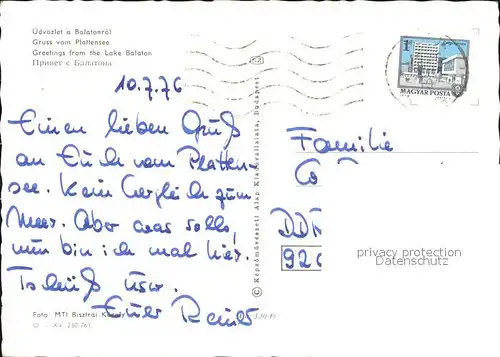 Üdvözlet a Balatonról
Gruss vom Plattensee
Greetings from the Lake Balaton
Привет с Балатона
10.7.76
Einen lieben Gruß
an Euch vom Platten-
see. Kein Vergleich zum
Meer. Aber was solls,
nun bin ich mal hier.
Tschüß usw.
Euer
Foto: MTI Bisztrai Károly
© Képzőművészeti Alap Kiadóvállalata, Budapest
MAGYAR POSTA
Familie
DD
92
privacy protection
Datenschutz